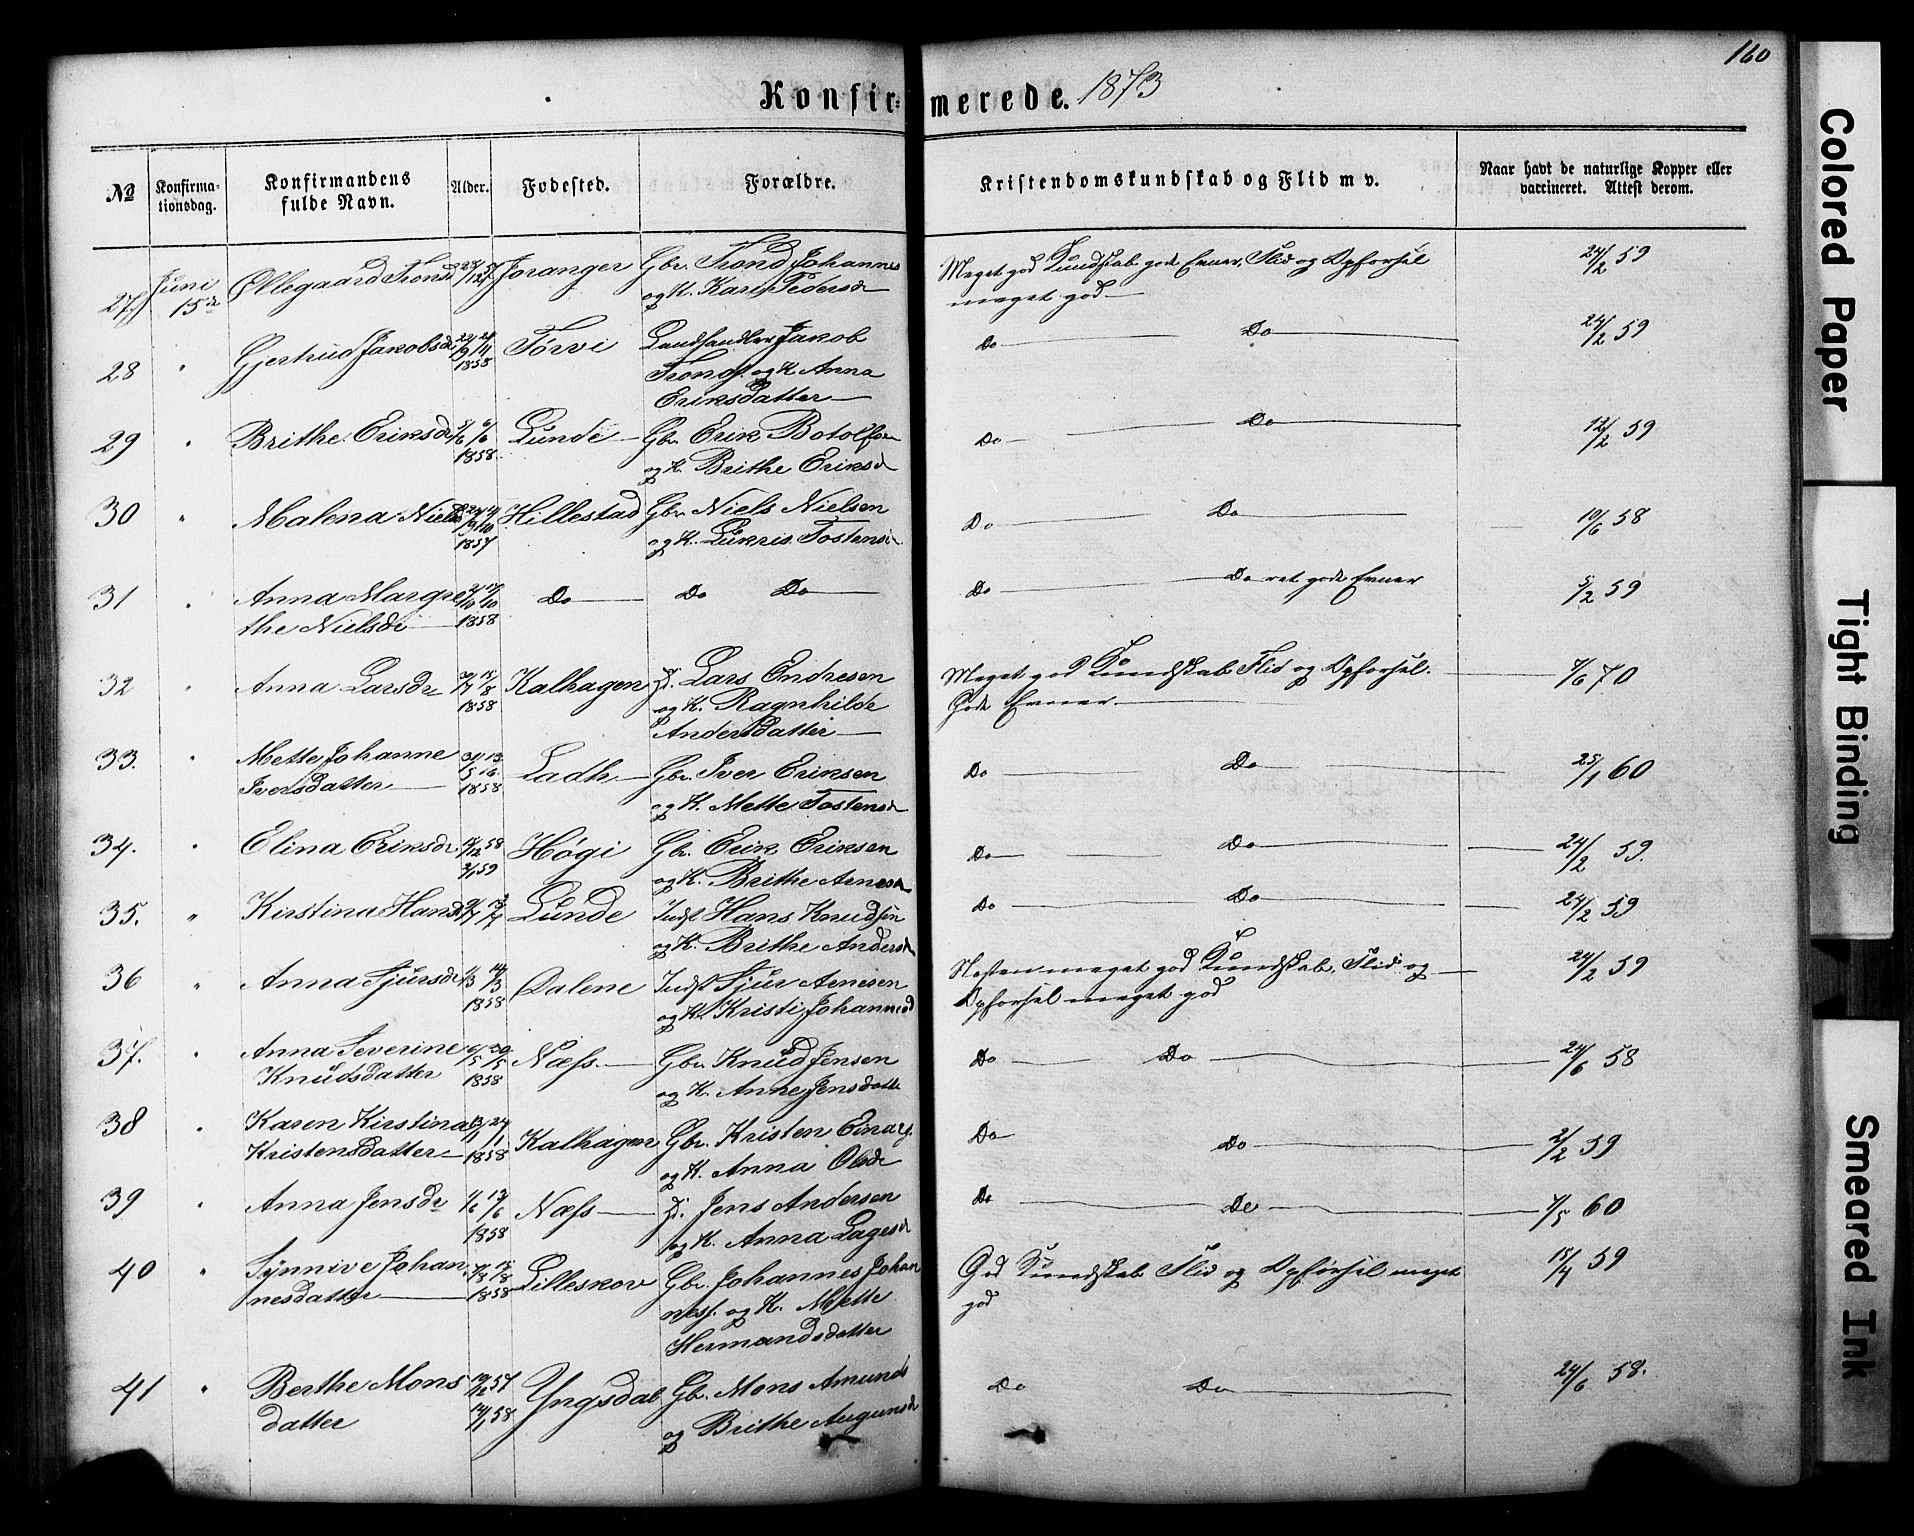 160
Konfirmerede. 1873
No
Konfirma-
tionsdag.
Konfirmandens
fulde Navn.
Alder.
Fødested.
Forældre.
Kristendomskundskab og Flid m v.
Naar havt de naturlige Kopper eller
vaccineret. Attest derom.
27. Juni 15de Øllegaard Joranger Gbr. Trond Johannes
og K. Kari Pedersd
Meget god Kundskab, gode Evner, Flid og Opførsel 24/2 59
meget god
28 " Gjertrud Jakobsdr 1858 Tørvi Landhandler Jakob
Tronds. og K. Anna
Eriksdatter
Do Do 24/2 59
29 " Brithe Eriksdr 1858 Lunde Gbr. Erik Botolfsen
og K. Brithe Eriksd
Do Do 12/2 59
30 " Malena Nielsd 1857 Hillestad Gbr. Niels Nielsen
og K. Lukris Tostensd
Do Do 10/6 58
31 " Anna Margre
the Nielsdr 1858 Do Do Do
Do Do ret gode Evner 5/2 59
32 " Anna Larsdr 1858 Kalhagen Lars Endresen
og K. Ragnhilde
Andersdatter
Meget god Kundskab, Flid og Opførsel. 7/6 70
Gode Evner.
33. " Mette Johanne
Iversdatter 1858 Ladh Gbr. Iver Eriksen
og K. Mette Tostensd
Do Do 25/1 60
34. " Elina Eriksdr 58 59 Høgi Gbr. Erik Eriksen
og K. Brithe Arnesd
Do Do 24/2 59.
35. " Kirstina Hansd Lunde Indst Hans Knudsen
og K. Brithe Andersd
Do Do 24/2 59
36 " Anna Sjursdr 1858 Dalene Indst Sjur Arnesen
og K. Kristi Johannesd
Næsten meget god Kundskab, Flid og 24/2 59
Opførsel meget god
37. " Anna Severine
Knudsdatter 6/5 30/5 1858 Næss Gbr. Knud Jensen
og K. Anne Jensdatte
Do Do 24/6 58
38 " Karen Kirstina
Kristensdatter 13/1 24/1 1858 Kalhagen Gbr. Kristen Einars.
og K. Anna Olsdr
Do Do 2/2 59
39 " Anna Jensdr 1/6 13/6 1858 Næss Jens Andersen
og K. Anna Lagesd
Do Do 7/5 60
40 " Synnive Johan
nesdatter 1858 Lilleskov Gbr. Johannes Johan
ness. og K. Mette
Hermandsdatter
God Kundskab, Flid og Opførsel meget 18/4 59
god
41 " Berthe Mons
datter 57 14/1 58 Yngsdal Gb. Mons Amunds
og Brithe Augunsd
Do Do 24/6 58.
Colored Paper
Tight Binding
Smeared Ink